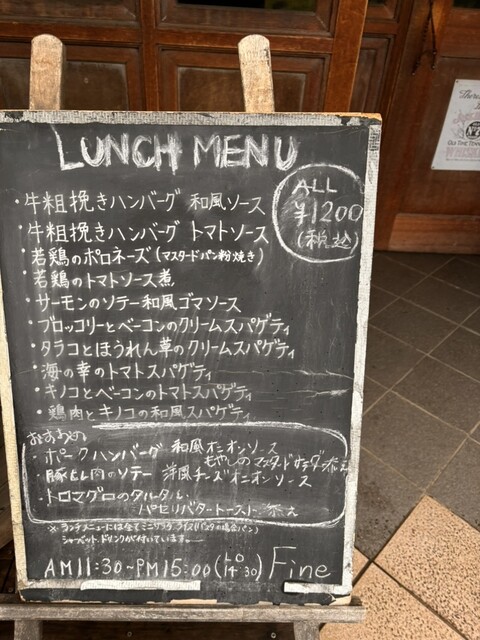 LUNCH MENU
ALL
¥1200
(税込)
・牛粗挽きハンバーグ 和風ソース
・牛粗挽きハンバーグ トマトソース
・若鶏のポロネーズ(マスタードパン粉焼き)
・若鶏のトマトソース煮
・サーモンのソテー和風ゴマソース
・ブロッコリーとベーコンのクリームスパゲティ
・タラコとほうれん草のクリームスパゲティ
・海の幸のトマトスパゲティ
・キノコとベーコンのトマトスパゲティ
・鶏肉とキノコの和風スパゲティ
おすすめ
・ポークハンバーグ 和風オニオンソース
もやしのマスタードサラダ添え
・豚ヒレ肉のソテー 洋風チーズオニオンソース
・トロマグロのタルタル
パセリバタートースト 添え
※ランチメニューには全てミニサラダ、ライス(パスタの場合パン)
シャーベット、ドリンクが付いています。
AM11:30~PM15:00(LO 14:30) Fine